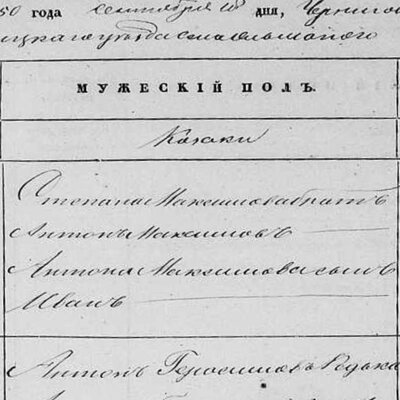 50 года сентября 18 дня, Чернигов
цкаго уѣзда
МУЖЕСКІЙ ПОЛЪ.
Козаки
Степана Максимова братъ
Антонъ Максимовъ
Антона Максимова сынъ
Иванъ
Антонъ Герасимовъ Редька